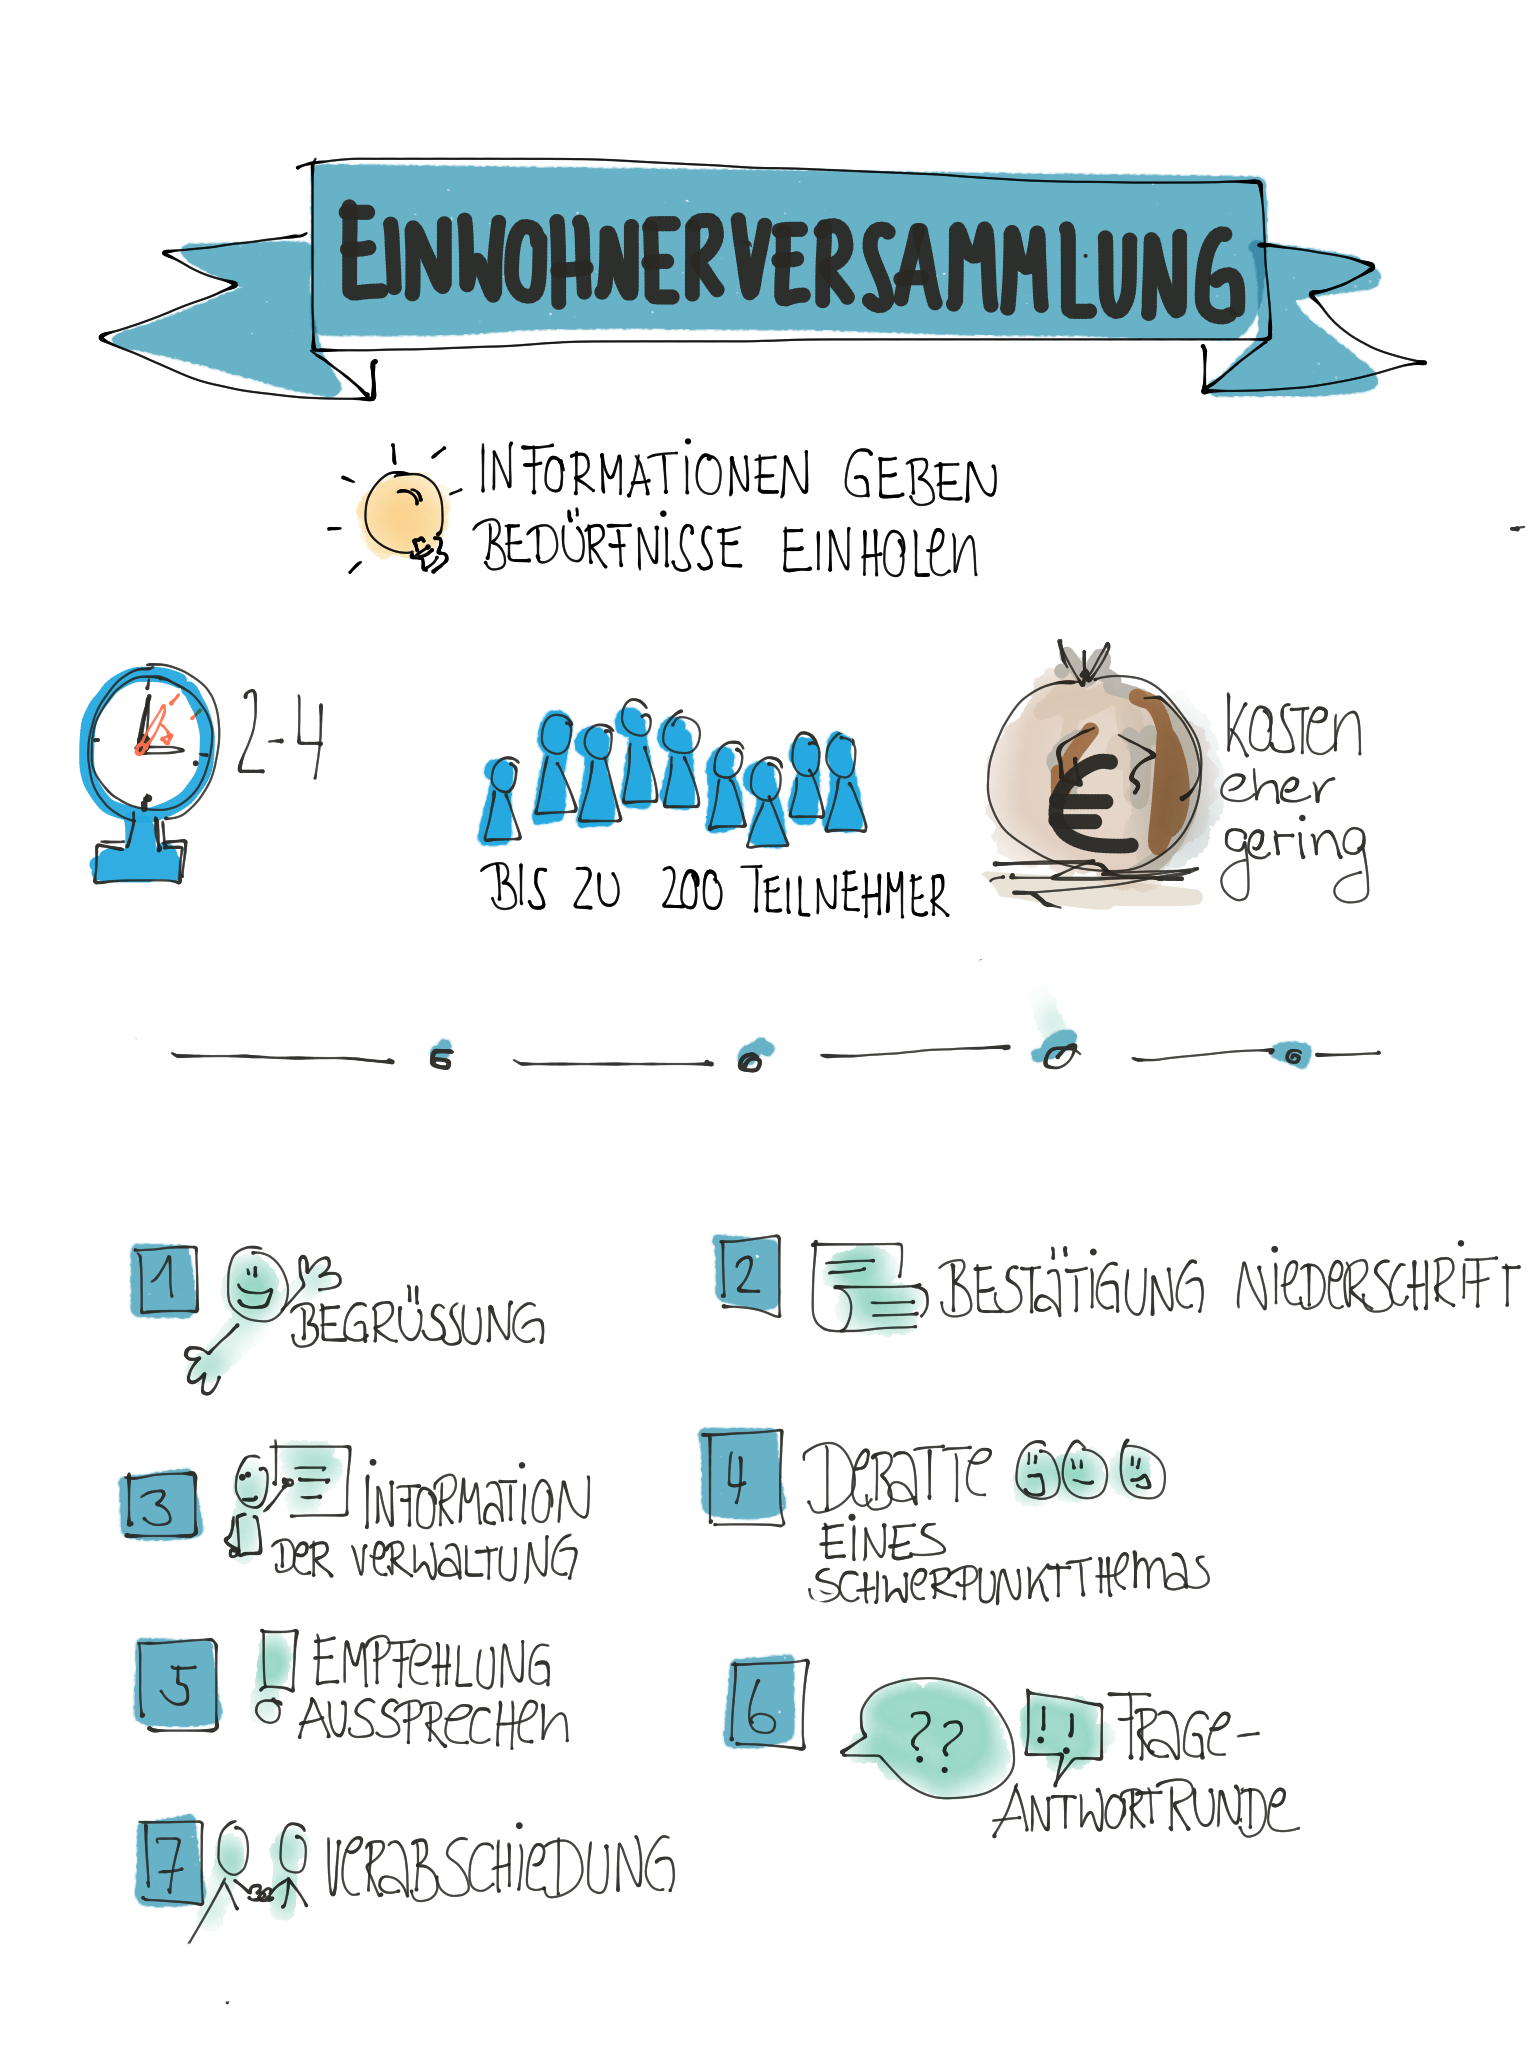 EINWOHNERVERSAMMLUNG
INFORMATIONEN GEBEN
BEDÜRFNISSE EINHOLEN
2-4
BIS ZU 200 TEILNEHMER
€
Kosten
eher
gering
1
BEGRÜSSUNG
2
BESTÄTIGUNG NIEDERSCHRIFT
3
INFORMATION
DER VERWALTUNG
4
DEBATTE
EINES
SCHWERPUNKTTHEMAS
5
!
EMPFEHLUNG
AUSSPRECHEN
6
??
!!
FRAGE-
ANTWORTRUNDE
7
VERABSCHIEDUNG